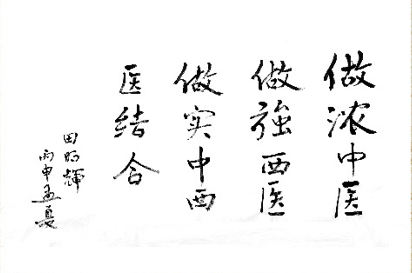 做浓中医
做强西医
做实中西
医结合
田明辉
丙申孟夏